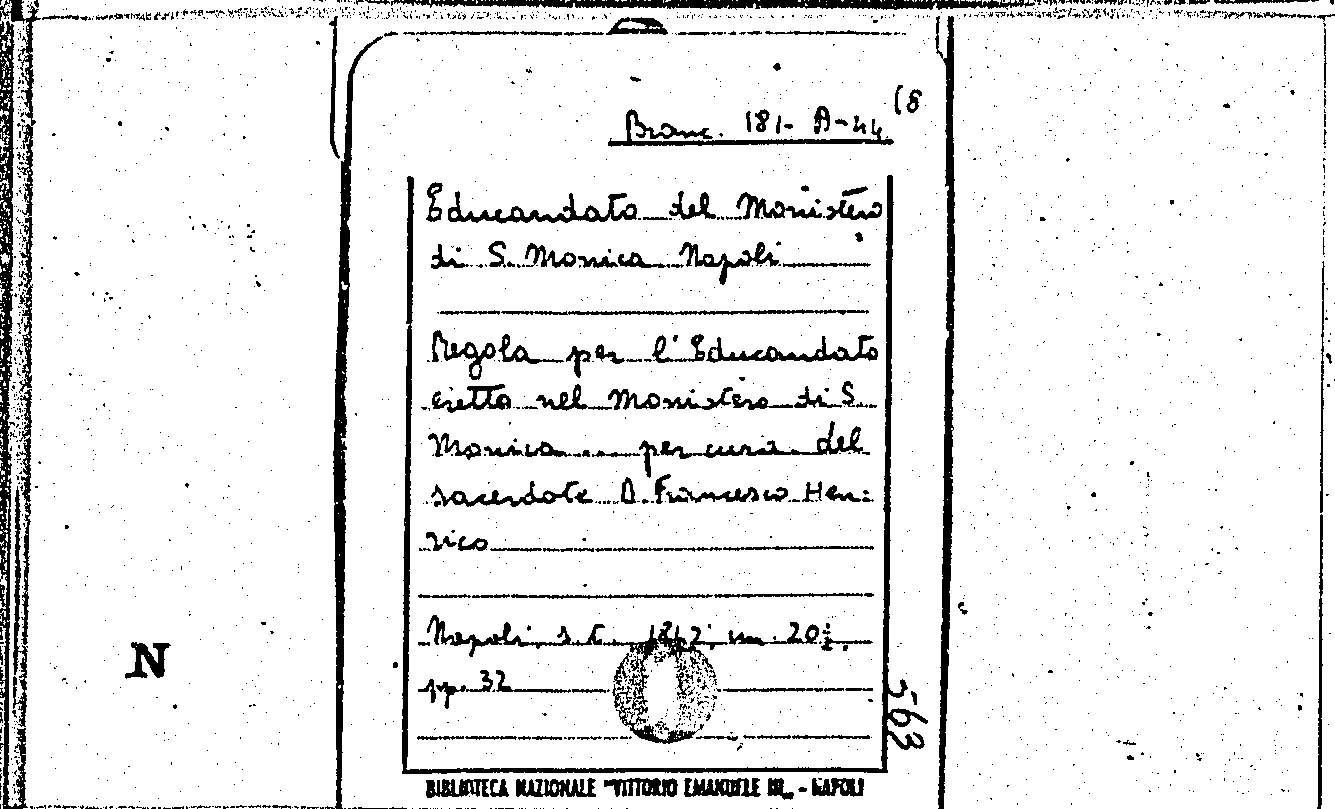 Branc. 181- A-44 (8
Educandato del Monistero
di S. Monica Napoli
Regola per l'Educandato
eretto nel Monistero di S.
Monica.... per cura del
sacerdote D. Francesco Hen:
rico
Napoli, s.t. 1842, in 20½.
pp. 32
N
563
BIBLIOTECA NAZIONALE "VITTORIO EMANUELE III„ - NAPOLI